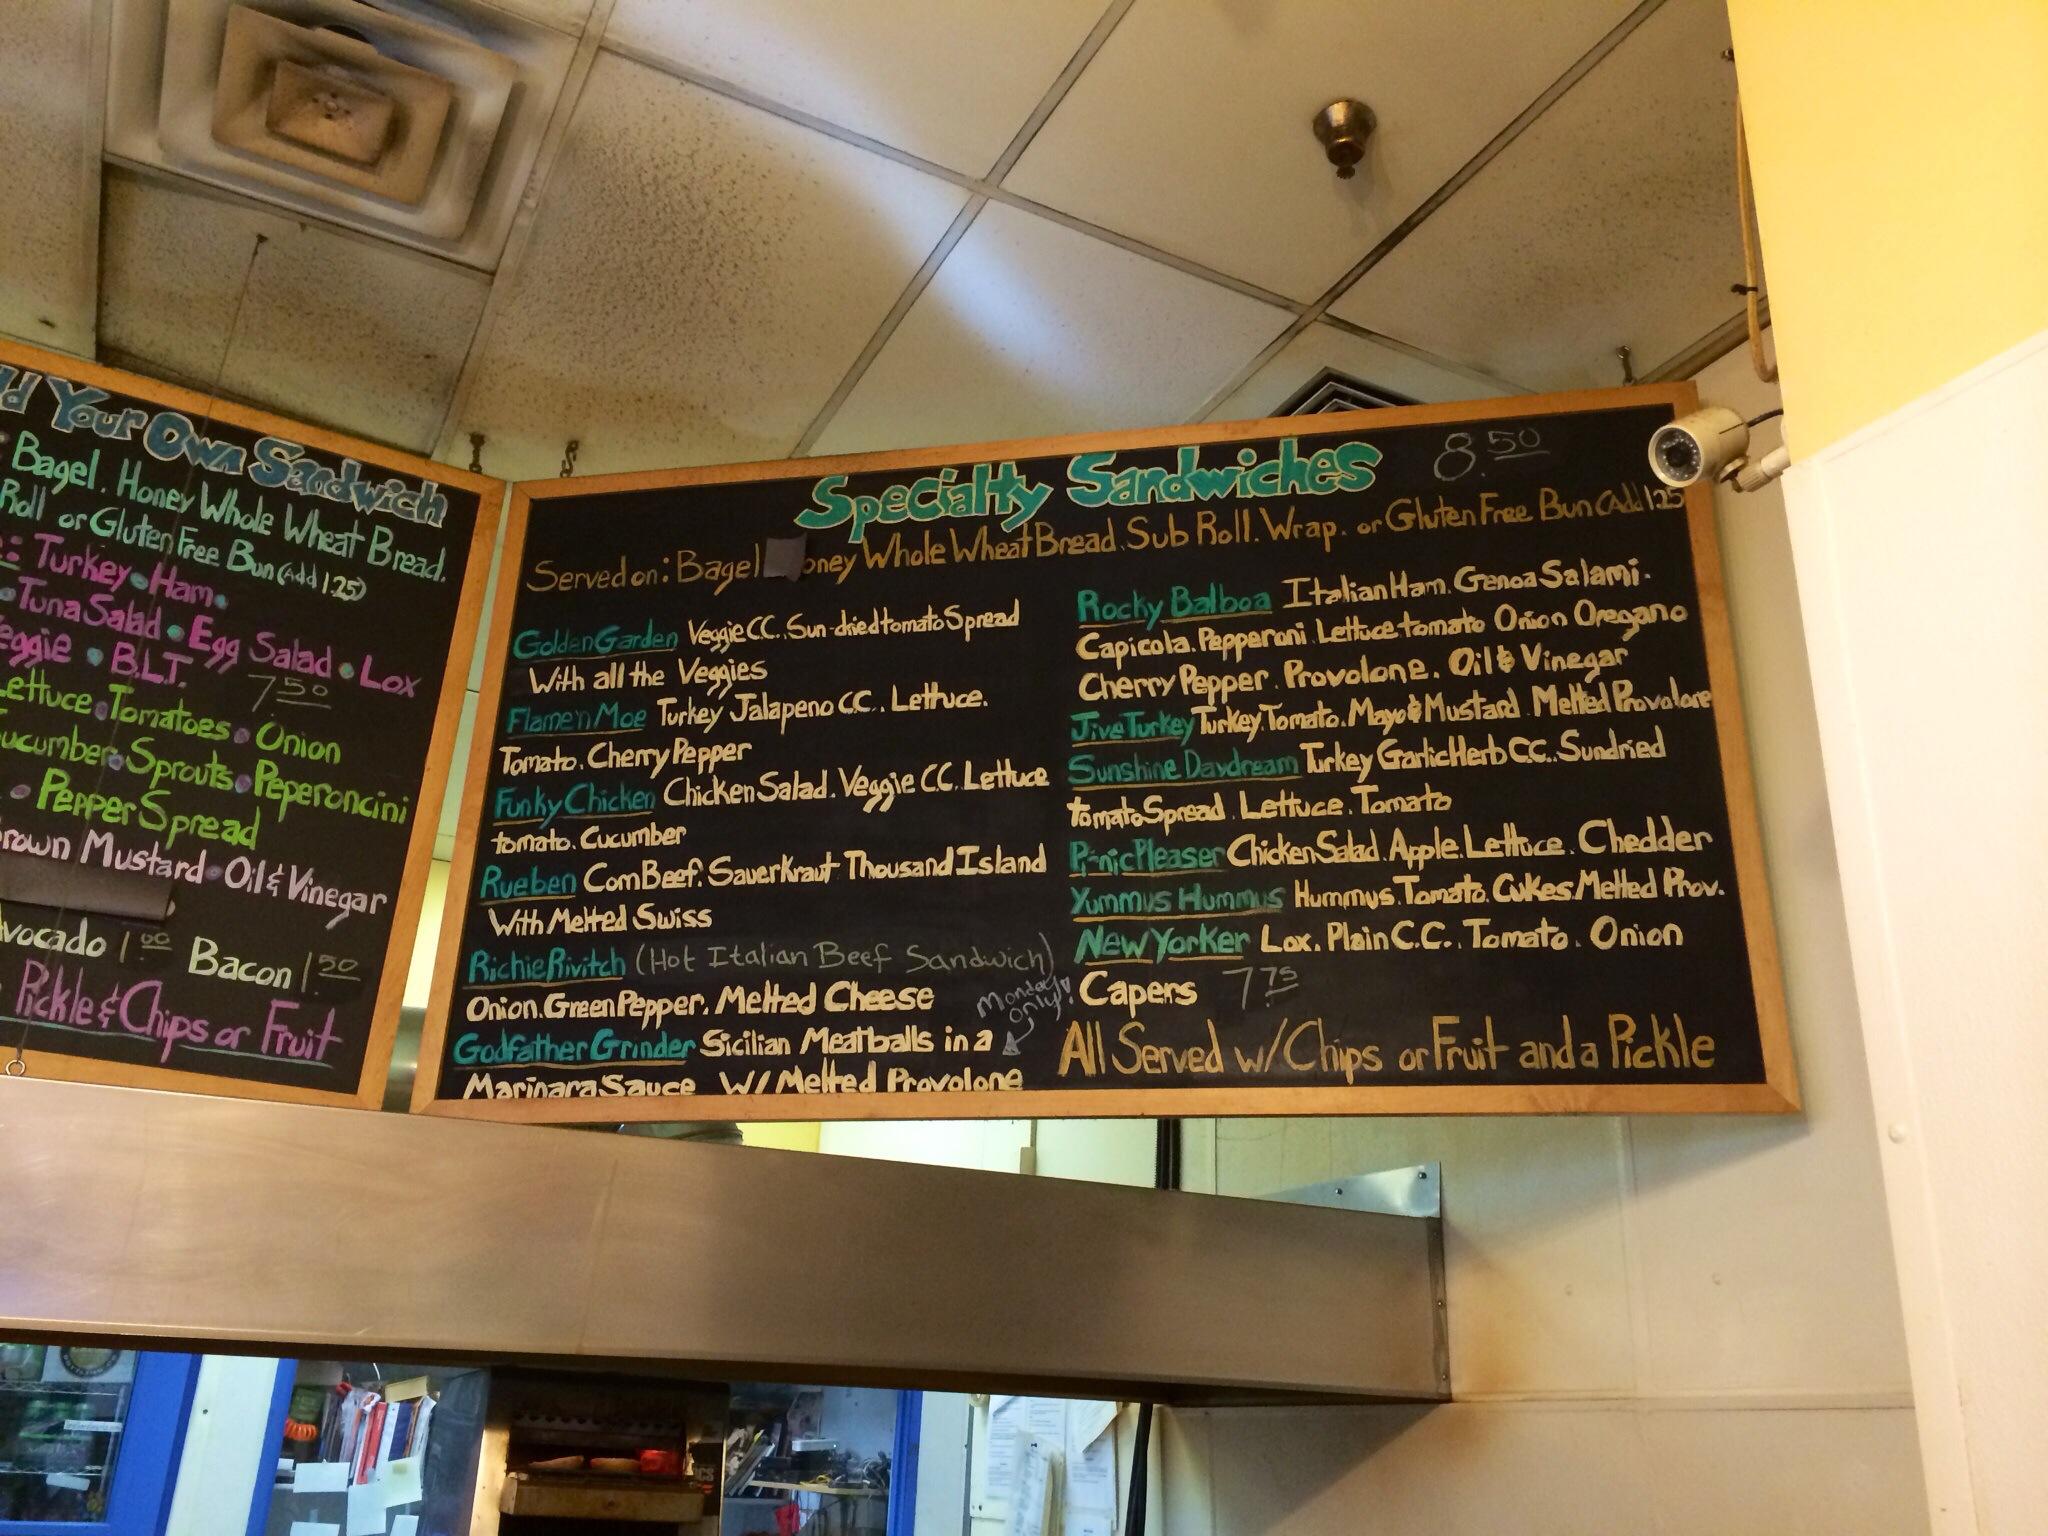 Your Own Sandwich
Bagel. Honey Whole Wheat Bread.
Roll or Gluten Free Bun (Add 1.25)
Turkey • Ham •
• Tuna Salad • Egg Salad • Lox
• B.L.T. 7.50
Lettuce • Tomatoes • Onion
• Sprouts • Peperoncini
• Pepper Spread
Mustard • Oil & Vinegar
1.00 Bacon 1.50
Pickle & Chips or Fruit
Specialty Sandwiches 8.50
Served on: Bagel oney Whole Wheat Bread. Sub Roll. Wrap. or Gluten Free Bun (Add 1.25
Golden Garden Veggie C.C.. Sun-dried tomato Spread
With all the Veggies
Flame'n Moe Turkey Jalapeno C.C.. Lettuce.
Tomato. Cherry Pepper
Funky Chicken Chicken Salad. Veggie C.C. Lettuce
tomato. Cucumber
Rueben Corn Beef. Sauerkraut Thousand Island
With Melted Swiss
Richie Rivitch (Hot Italian Beef Sandwich)
Onion. Green Pepper. Melted Cheese
Monday only!
Godfather Grinder Sicilian Meatballs in a
Marinara Sauce W/ Melted Provolone
Rocky Balboa Italian Ham. Genoa Salami.
Capicola. Pepperoni. Lettuce tomato Onion Oregano
Cherry Pepper. Provolone. Oil & Vinegar
Jive Turkey Turkey. Tomato. Mayo & Mustard. Melted Provolone
Sunshine Daydream Turkey Garlic Herb C.C.. Sundried
tomato Spread. Lettuce. Tomato
P-nic Pleaser Chicken Salad. Apple. Lettuce. Chedder
Yummus Hummus Hummus. Tomato. Cukes. Melted Prov.
New Yorker Lox. Plain C.C.. Tomato. Onion
Capers 7.75
All Served w/ Chips or Fruit and a Pickle